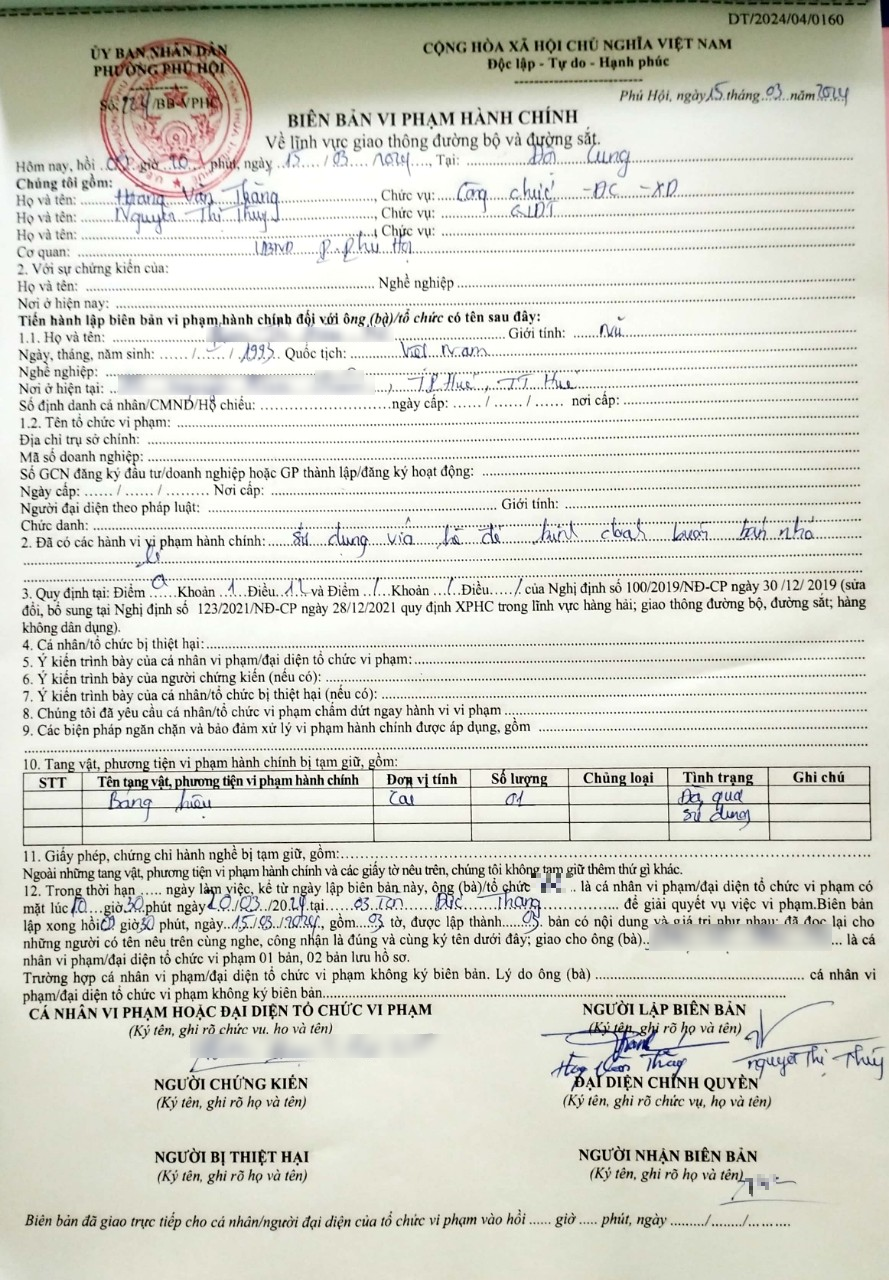 DT/2024/04/0160
ỦY BAN NHÂN DÂN
PHƯỜNG PHÚ HỘI
CỘNG HÒA XÃ HỘI CHỦ NGHĨA VIỆT NAM
Độc lập - Tự do - Hạnh phúc
Số: 124/BB-VPHC
Phú Hội, ngày 15 tháng 03 năm 2024
BIÊN BẢN VI PHẠM HÀNH CHÍNH
Về lĩnh vực giao thông đường bộ và đường sắt.
Hôm nay, hồi giờ phút, ngày 15/03/2024, Tại: Đội Cung
Chúng tôi gồm:
Họ và tên: Hoàng Văn Thắng, Chức vụ: Công chức - ĐC - XD
Họ và tên: Nguyễn Thị Thúy, Chức vụ:
Họ và tên:, Chức vụ:
Cơ quan: UBND P. Phú Hội
2. Với sự chứng kiến của:
Họ và tên: Nghề nghiệp
Nơi ở hiện nay:
Tiến hành lập biên bản vi phạm hành chính đối với ông (bà)/tổ chức có tên sau đây:
1.1. Họ và tên: Giới tính: Nữ
Ngày, tháng, năm sinh: / - / 1993. Quốc tịch: Việt Nam
Nghề nghiệp:
Nơi ở hiện tại:, TP Huế, TT Huế
Số định danh cá nhân/CMND/Hộ chiếu: ngày cấp: / / nơi cấp:
1.2. Tên tổ chức vi phạm:
Địa chỉ trụ sở chính:
Mã số doanh nghiệp:
Số GCN đăng ký đầu tư/doanh nghiệp hoặc GP thành lập/đăng ký hoạt động:
Ngày cấp: / / Nơi cấp:
Người đại diện theo pháp luật: Giới tính:
Chức danh:
2. Đã có các hành vi vi phạm hành chính: sử dụng vỉa hè để kinh doanh buôn bán nhỏ
lẻ
3. Quy định tại: Điểm a Khoản 1 Điều 12 và Điểm / Khoản / Điều / của Nghị định số 100/2019/NĐ-CP ngày 30 /12/ 2019 (sửa
đổi, bổ sung tại Nghị định số 123/2021/NĐ-CP ngày 28/12/2021 quy định XPHC trong lĩnh vực hàng hải; giao thông đường bộ, đường sắt; hàng
không dân dụng).
4. Cá nhân/tổ chức bị thiệt hại:
5. Ý kiến trình bày của cá nhân vi phạm/đại diện tổ chức vi phạm:
6. Ý kiến trình bày của người chứng kiến (nếu có):
7. Ý kiến trình bày của cá nhân/tổ chức bị thiệt hại (nếu có):
8. Chúng tôi đã yêu cầu cá nhân/tổ chức vi phạm chấm dứt ngay hành vi vi phạm
9. Các biện pháp ngăn chặn và bảo đảm xử lý vi phạm hành chính được áp dụng, gồm
10. Tang vật, phương tiện vi phạm hành chính bị tạm giữ, gồm:
STT Tên tang vật, phương tiện vi phạm hành chính Đơn vị tính Số lượng Chủng loại Tình trạng Ghi chú
Bảng hiệu Cái 01 Đã qua
sử dụng
11. Giấy phép, chứng chỉ hành nghề bị tạm giữ, gồm:
Ngoài những tang vật, phương tiện vi phạm hành chính và các giấy tờ nêu trên, chúng tôi không tạm giữ thêm thứ gì khác.
12. Trong thời hạn ..... ngày làm việc, kể từ ngày lập biên bản này, ông (bà)/tổ chức là cá nhân vi phạm/đại diện tổ chức vi phạm có
mặt lúc 10 giờ 30 phút ngày 20/03/2024 tại 03 Tôn Đức Thắng để giải quyết vụ việc vi phạm. Biên bản
lập xong hồi giờ 30 phút, ngày 15/03/2024, gồm 03 tờ, được lập thành 03 bản có nội dung và giá trị như nhau; đã đọc lại cho
những người có tên nêu trên cùng nghe, công nhận là đúng và cùng ký tên dưới đây; giao cho ông (bà) là cá
nhân vi phạm/đại diện tổ chức vi phạm 01 bản, 02 bản lưu hồ sơ.
Trường hợp cá nhân vi phạm/đại diện tổ chức vi phạm không ký biên bản. Lý do ông (bà) cá nhân vi
phạm/đại diện tổ chức vi phạm không ký biên bản
CÁ NHÂN VI PHẠM HOẶC ĐẠI DIỆN TỔ CHỨC VI PHẠM
(Ký tên, ghi rõ chức vụ, họ và tên)
NGƯỜI LẬP BIÊN BẢN
(Ký tên, ghi rõ họ và tên)
Hoàng Văn Thắng Nguyễn Thị Thúy
NGƯỜI CHỨNG KIẾN
(Ký tên, ghi rõ họ và tên)
ĐẠI DIỆN CHÍNH QUYỀN
(Ký tên, ghi rõ chức vụ, họ và tên)
NGƯỜI BỊ THIỆT HẠI
(Ký tên, ghi rõ họ và tên)
NGƯỜI NHẬN BIÊN BẢN
(Ký tên, ghi rõ họ và tên)
Biên bản đã giao trực tiếp cho cá nhân/người đại diện của tổ chức vi phạm vào hồi ...... giờ ..... phút, ngày ......../......../..........